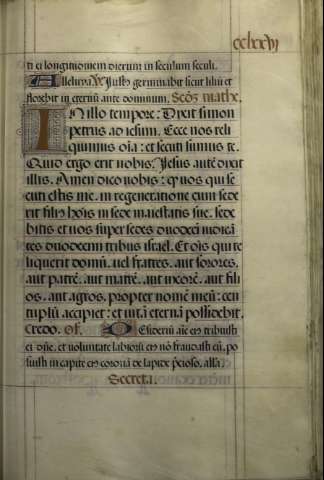 cclxxvi
ti ei longitudinem dierum in seculum seculi.
Alleluya V Justus germinabit sicut lilium et
florebit in eternum ante dominum. Secdm mathe.
IN illo tempore: Dixit simon
petrus ad iesum. Ecce nos reli
quimus oia: et secuti sumus te.
Quid ergo erit nobis. Jesus aute dixit
illis. Amen dico vobis: q vos qui se
cuti estis me. in regeneratione cum sede
rit filius hois in sede maiestatis sue. sede
bitis et vos super sedes duodeci iudica
tes duodecim tribus israel. Et ois qui re
liquerit domu. vel fratres. aut sorores.
aut patre. aut matre. aut uxore. aut fili
os. aut agros. propter nome meu: cen
tuplu accipiet: et vita eterna possidebit.
Credo. Of. Desideriu aie eius tribuisti
ei dne. et voluntate labioru eius no fraudasti eu. po
suisti in capite eius corona de lapide precioso. alla.
Secreta.